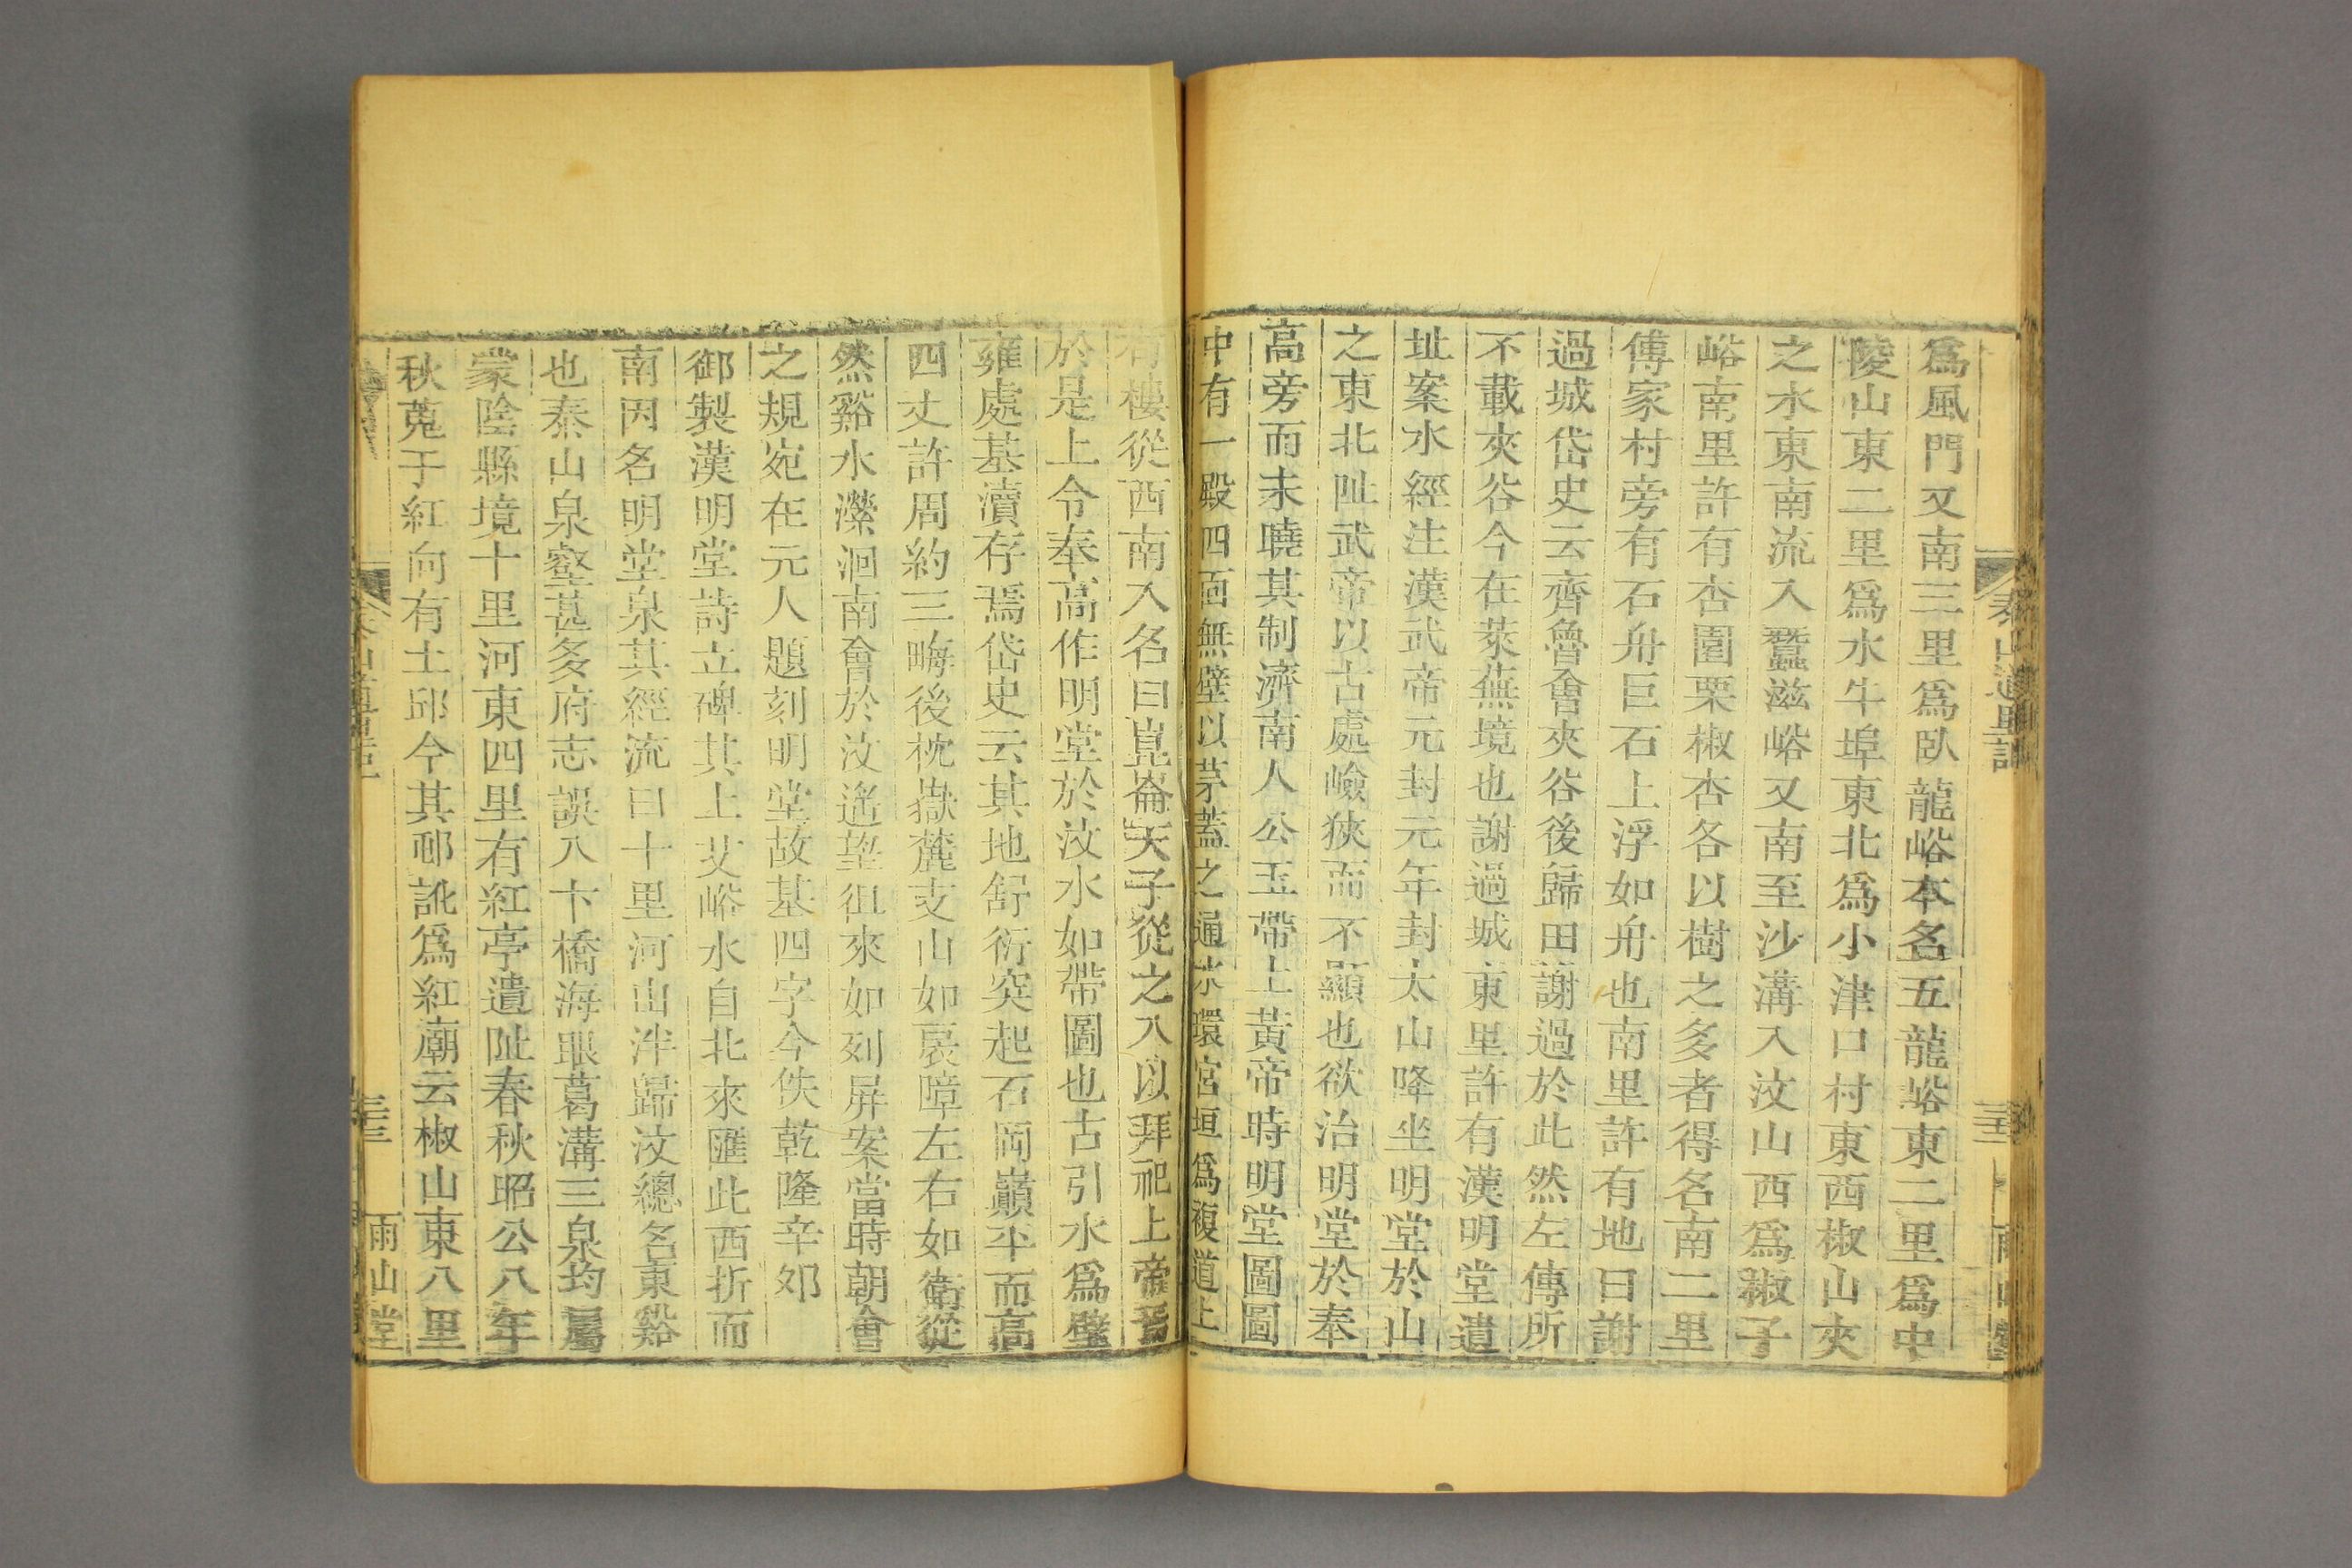 爲風門又南三里爲臥龍峪本名五龍峪東二里爲中
陵山東二里爲水牛埠東北爲小津口村東西椒山夾
之水東南流入蠶滋峪又南至沙溝入汶山西爲椒子
峪南里許有杏園栗椒杏各以樹之多者得名南二里
傅家村旁有石舟巨石上浮如舟也南里許有地曰謝
過城岱史云齊魯會夾谷後歸田謝過於此然左傳所
不載夾谷今在萊蕪境也謝過城東里許有漢明堂遺
址案水經注漢武帝元封元年封太山降坐明堂於山
之東北阯武帝以古處嶮狹而不顯也欲治明堂於奉
高旁而未曉其制濟南人公玉帶上黃帝時明堂圖圖
中有一殿四面無壁以茅蓋之通水環宮垣爲複道上
有樓從西南入名曰崑崙天子從之入以拜祀上帝焉
於是上令奉高作明堂於汶水如帶圖也古引水爲璧
雍處基瀆存焉岱史云其地舒衍突起石岡巔平而高
四丈許周約三畮後枕嶽麓支山如扆障左右如衛從
然谿水瀠洄南會於汶遙望徂來如列屏案當時朝會
之規宛在元人題刻明堂故基四字今佚乾隆辛郊
御製漢明堂詩立碑其上艾峪水自北來匯此西折而
南因名明堂泉其經流曰十里河山泮歸汶總名東谿
也泰山泉壑甚多府志誤入卞橋海眼葛溝三泉均屬
蒙陰縣境十里河東四里有紅亭遺阯春秋昭公八年
秋蒐于紅向有土邱今其邨訛爲紅廟云椒山東八里
泰山道里記
三三
雨山堂